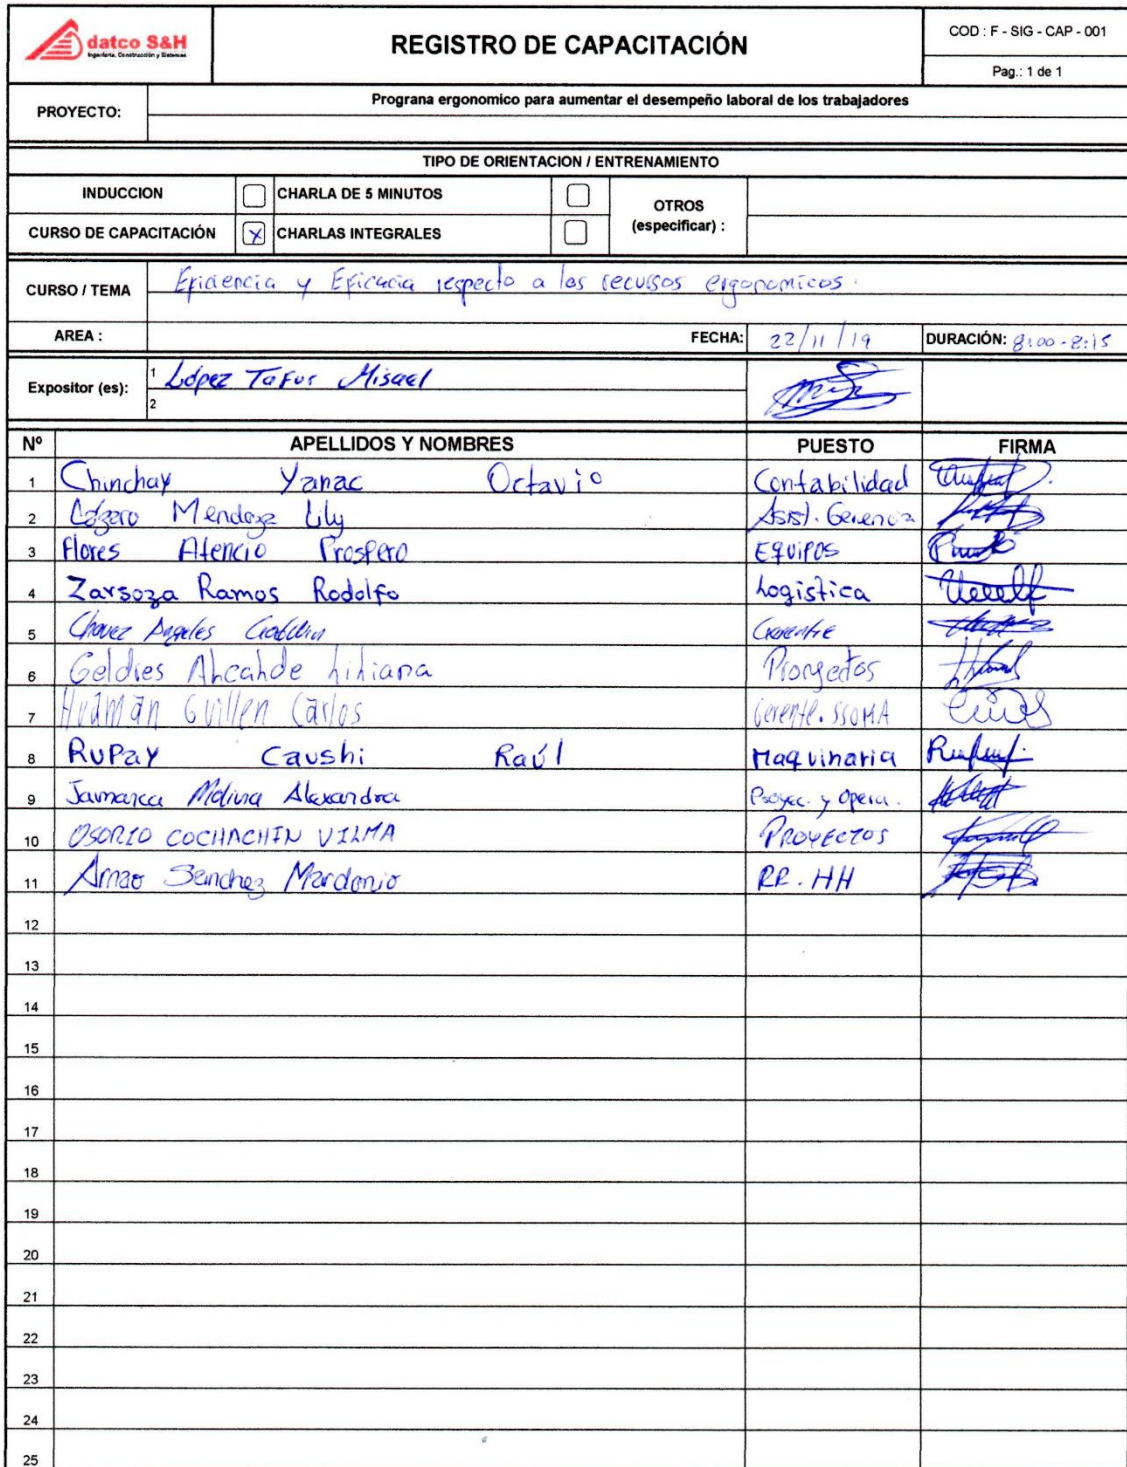 datco S&H
Ingeniería, Construcción y Sistemas
REGISTRO DE CAPACITACIÓN
COD : F - SIG - CAP - 001
Pag.: 1 de 1
PROYECTO:
Prograna ergonomico para aumentar el desempeño laboral de los trabajadores
TIPO DE ORIENTACION / ENTRENAMIENTO
INDUCCION CHARLA DE 5 MINUTOS
OTROS (especificar) :
CURSO DE CAPACITACIÓN X CHARLAS INTEGRALES
CURSO / TEMA Eficiencia y Eficacia respecto a los recursos ergonomicos.
AREA : FECHA: 22/11/19 DURACIÓN: 8:00 - 8:15
Expositor (es): 1 López Tafur Misael
2
Nº APELLIDOS Y NOMBRES PUESTO FIRMA
1 Chinchay Yanac Octavio Contabilidad
2 Mendoza Lily Asist. Gerencia
3 Flores Atencio Prospero Equipos
4 Zarsoza Ramos Rodolfo Logistica
5 Chavez Angeles Gerente
6 Geldres Ahcahde Liliana Proryectos
7 Huamán Guillen Carlos Gerente. SSOMA
8 Rupay Caushi Raúl Maquinaria
9 Molina Alexandra Proyec. y Opera.
10 OSORIO COCHACHIN VILMA PROYECTOS
11 Arnao Sanchez Mardonio RR. HH
12
13
14
15
16
17
18
19
20
21
22
23
24
25